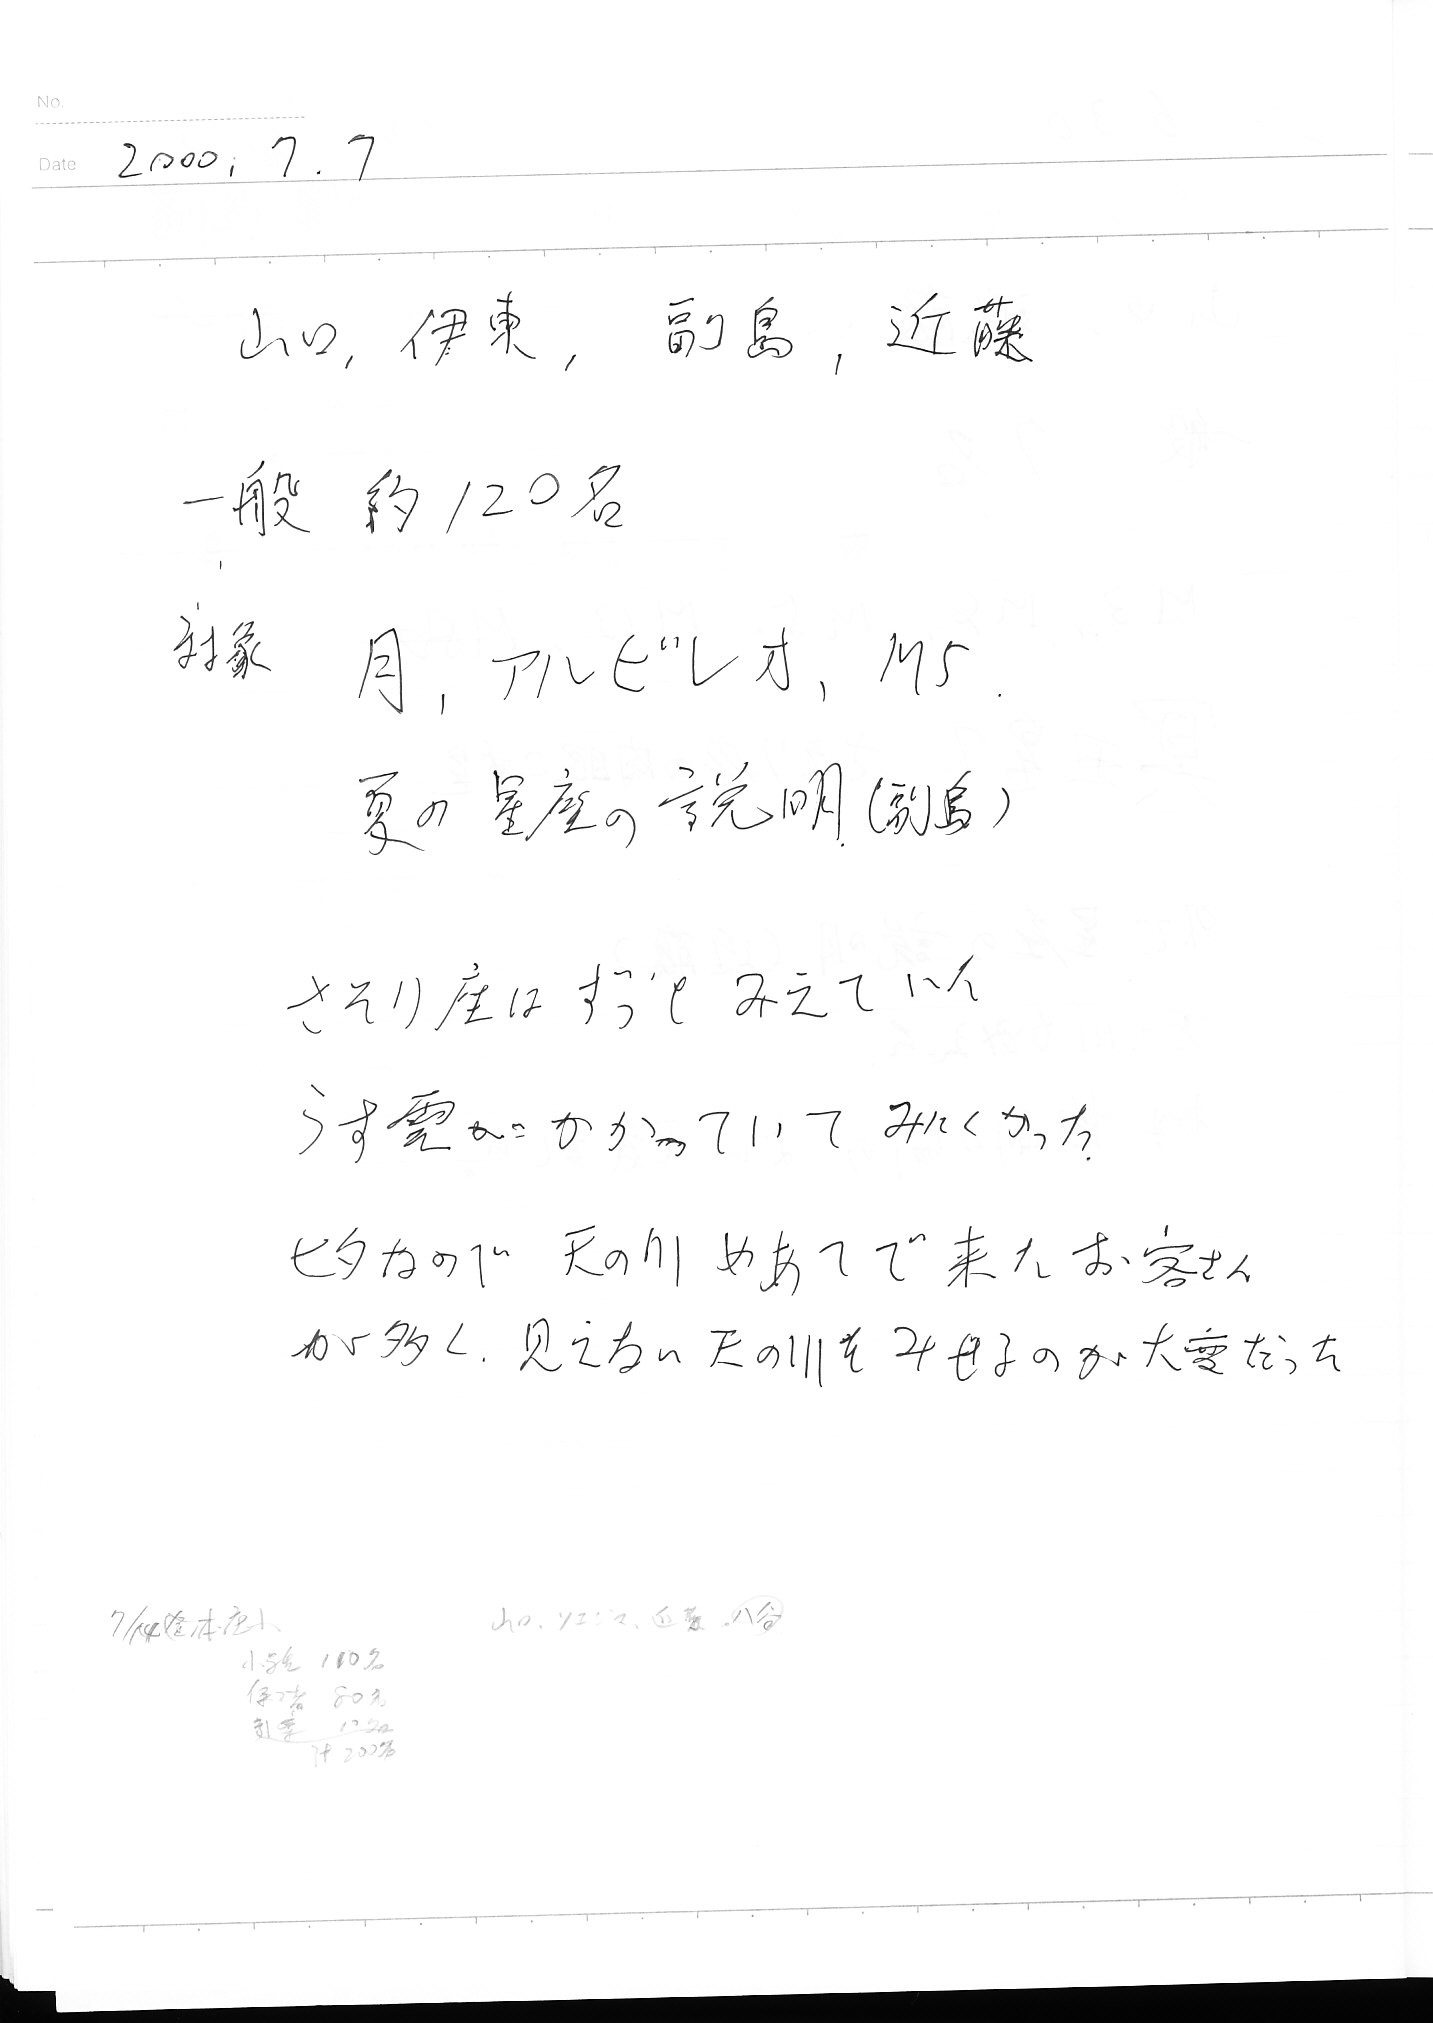 No.
Date 2000. 7. 7
山口, 伊東, 副島, 近藤
一般 約120名
対象 月, アルビレオ, M5.
夏の星座の説明(副島)
さそり座はずっとみえていた
うす雲がかかっていてみにくかった.
七夕なので天の川めあてで来たお客さん
が多く. 見えない天の川をみせるのが大変だった
7/14 本庄小
山口、ソエジマ、近藤、八谷
小学生 110名
保ゴ者 80名
計 200名